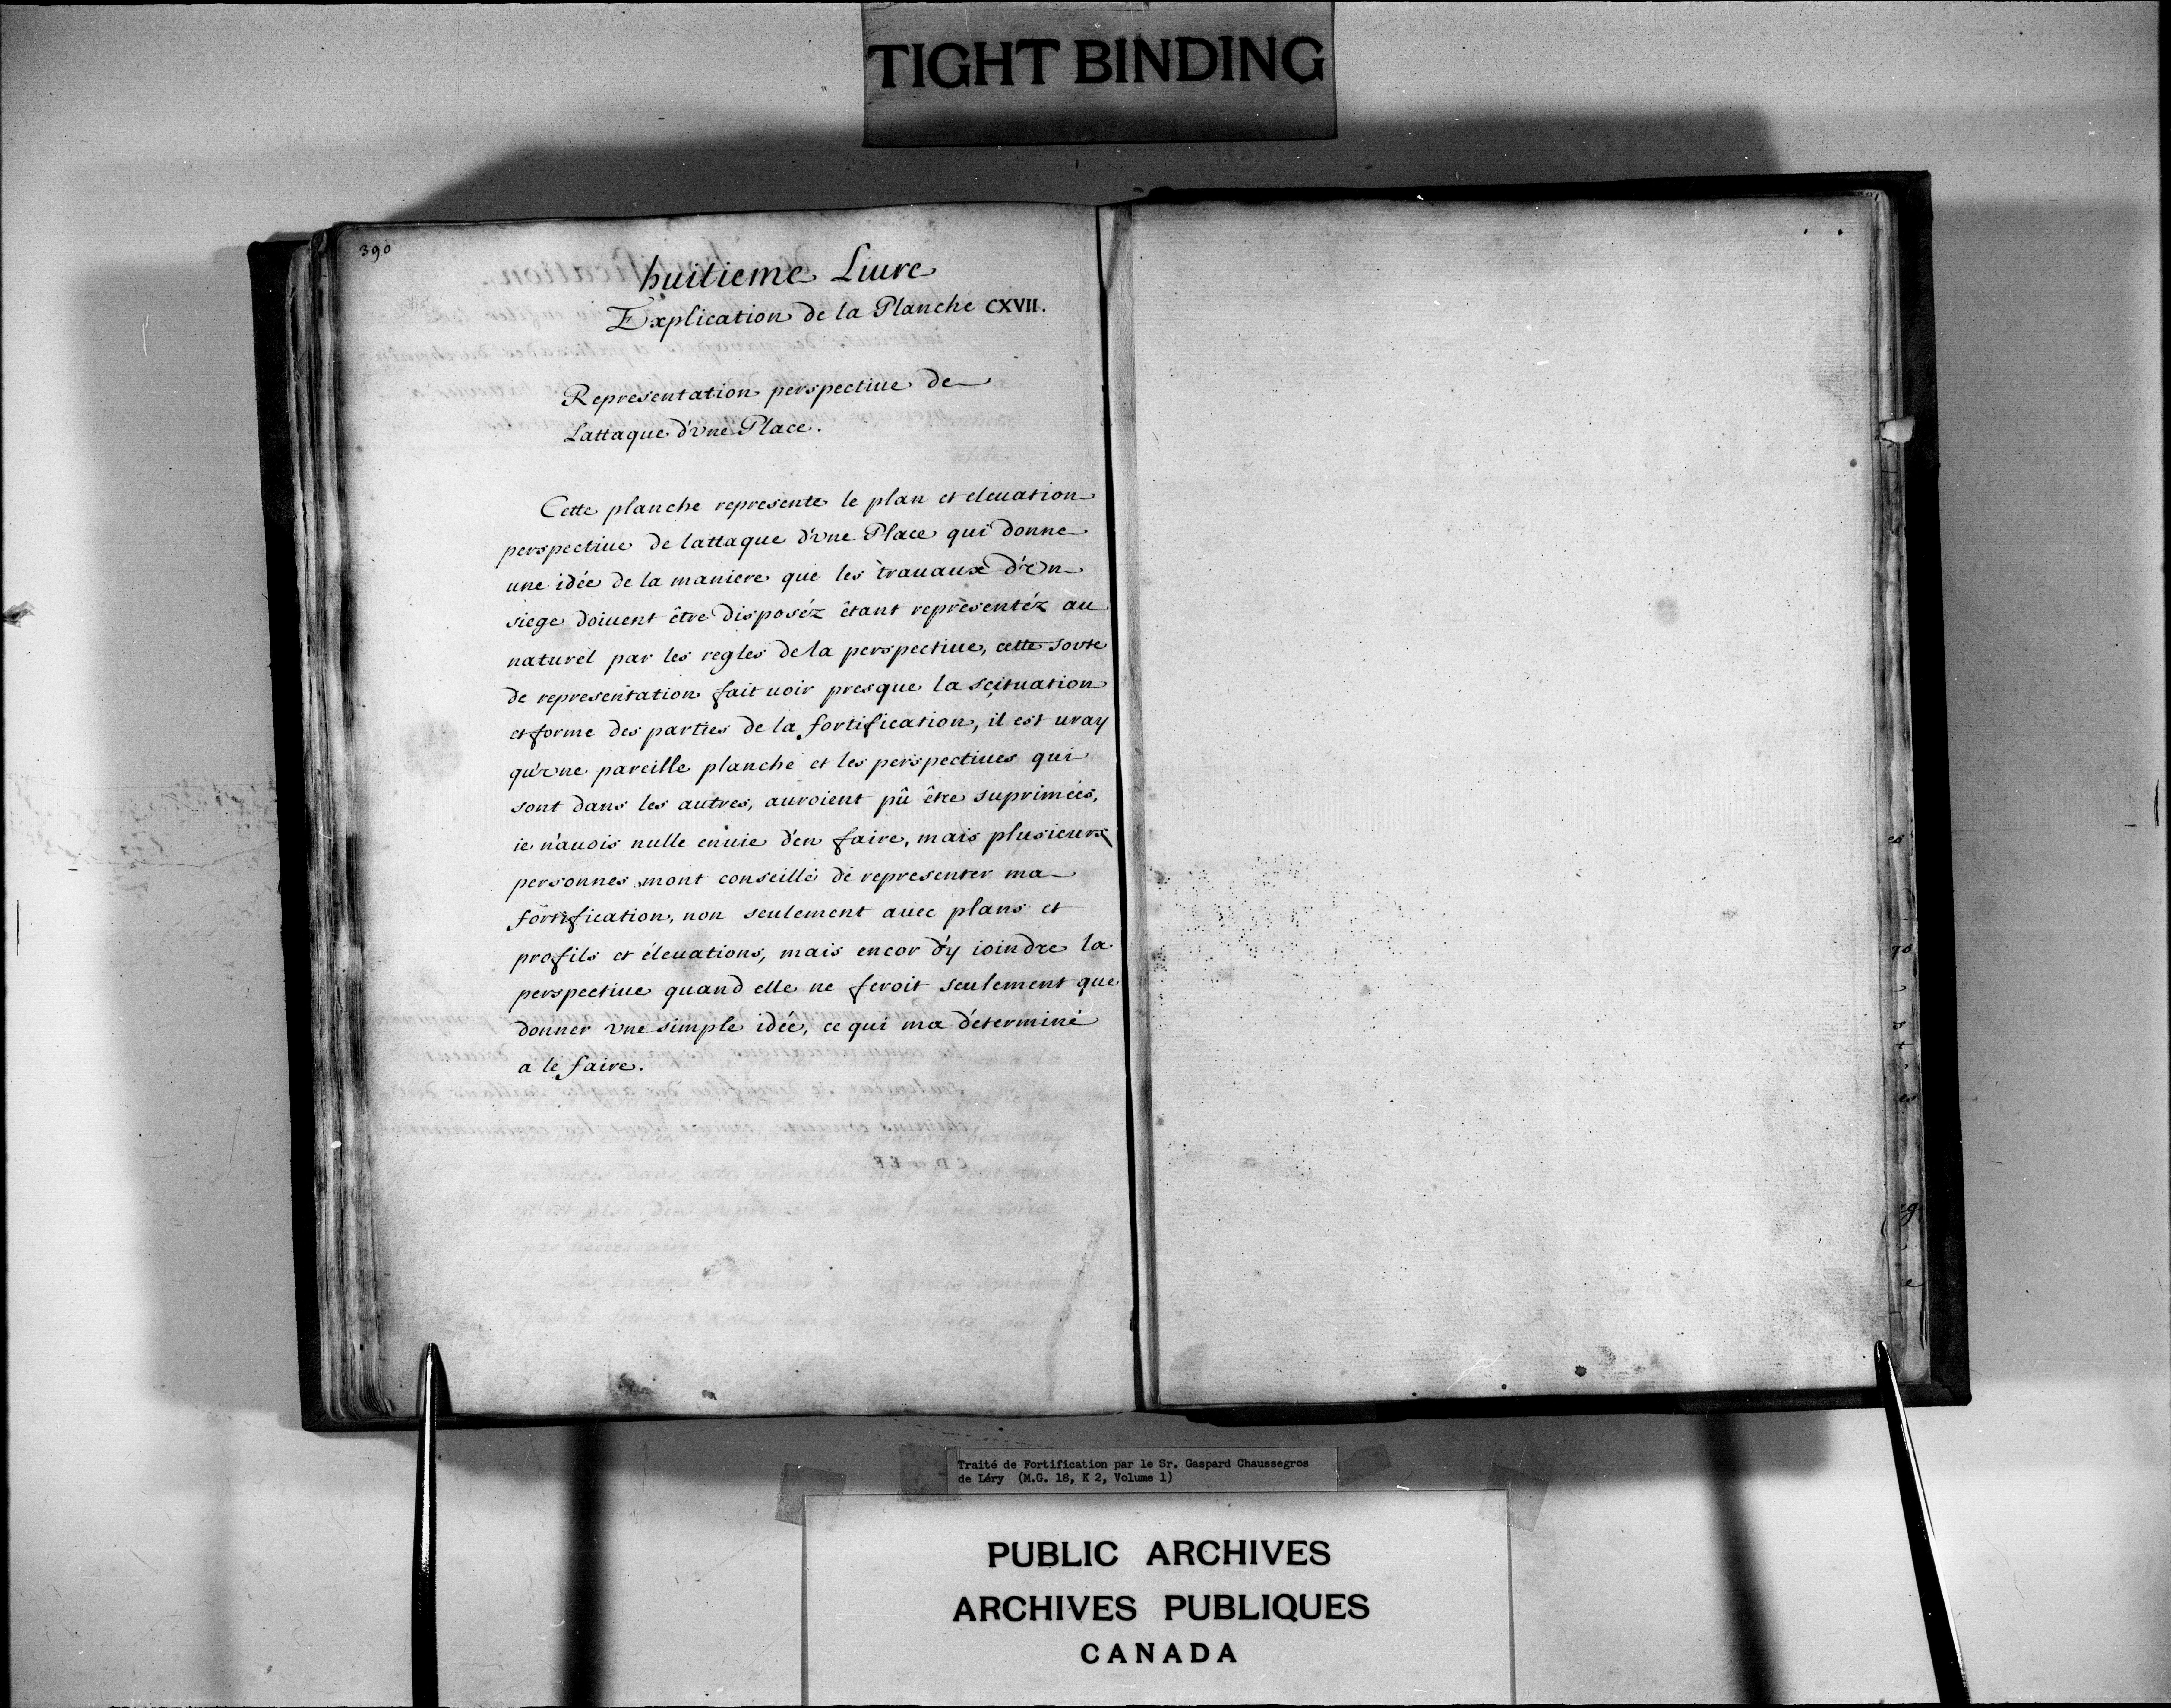 TIGHT BINDING
390
huitieme Liure
Explication de la Planche CXVII.
Representation perspectiue de
Lattaque d'vne Place.
Cette planche represente le plan et eleuation
perspectiue de lattaque d'vne Place qui donne
une idée de la maniere que les trauaux d'vn
siege doiuent être disposéz étant representéz au
naturel par les regles de la perspectiue, cette sorte
de representation fait uoir presque la scituation
et forme des parties de la fortification, il est uray
qu'vne pareille planche et les perspectiues qui
sont dans les autres, auroient pû être suprimées,
ie n'auois nulle enuie d'en faire, mais plusieurs
personnes mont conseillé de representer ma
fortification, non seulement auec plans et
profils et éleuations, mais encor d'y ioindre la
perspectiue quand elle ne feroit seulement que
donner vne simple idée, ce qui ma déterminé
a le faire.
Traité de Fortification par le Sr. Gaspard Chaussegros
de Léry (M.G. 18, K 2, Volume 1)
PUBLIC ARCHIVES
ARCHIVES PUBLIQUES
CANADA